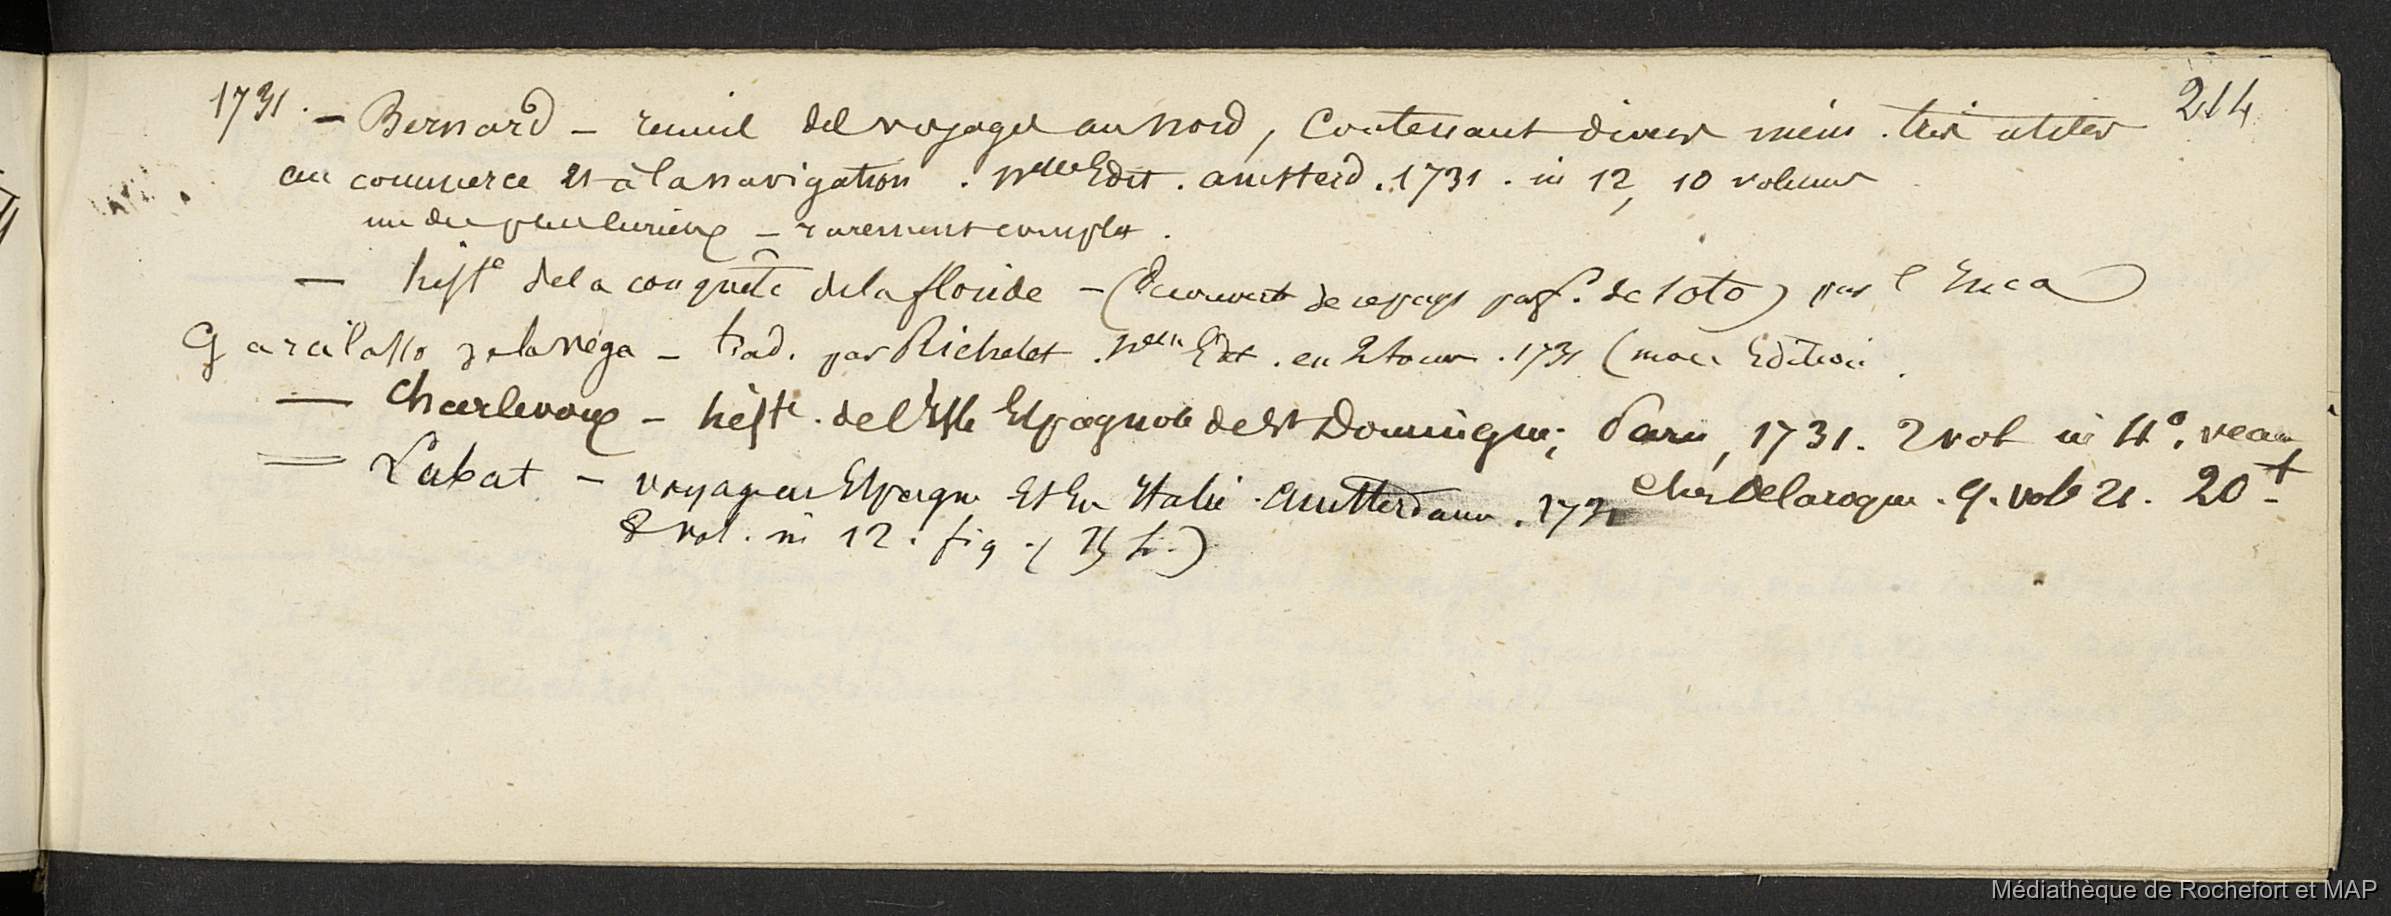 214
1731. — Bernard — recueil des voyages au nord, contenant divers mém. très utiles
au commerce et à la navigation. nelle Edit. amsterd. 1731. in 12, 10 volumes
un des plus curieux — rarement complet.
— histe de la conquête de la floride — (Decouverte de ce pays par f. de Soto) par l'Inca
Garcilasso de la Vega — trad. par Richelet. nelle Edit. en 2 tomes. 1731 (mau. Edition.
— Charlevoix — histe. de l'Isle Espagnole de St Domingue; Paris, 1731. 2 vol in 4°. veau
— Labat — voyage en Espagne Et En Italie. Amsterdam. 1731 chez Delaroque. 9. vol. 21. 20
8 vol. in 12. fig.
Médiathèque de Rochefort et MAP